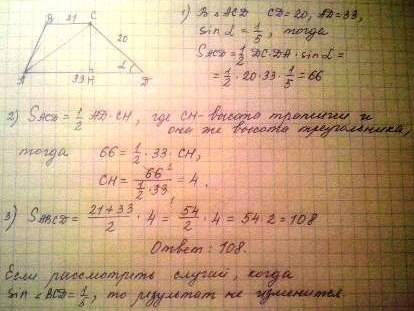 B 21 C
20
A 33 H α D
1) В △ ACD CD = 20, AD = 33,
sin α = 1/5, тогда
S_ACD = 1/2 DC · DA · sin α =
= 1/2 · 20 · 33 · 1/5 = 66
2) S_ACD = 1/2 AD · CH, где CH - высота трапеции и
она же высота треугольника,
тогда 66 = 1/2 · 33 · CH,
CH = 66 / (1/2 · 33) = 4.
3) S_ABCD = (21 + 33)/2 · 4 = 54/2 · 4 = 54 · 2 = 108
Ответ: 108.
Если рассмотреть случай, когда
sin ∠ BCD = 1/5, то результат не изменится.